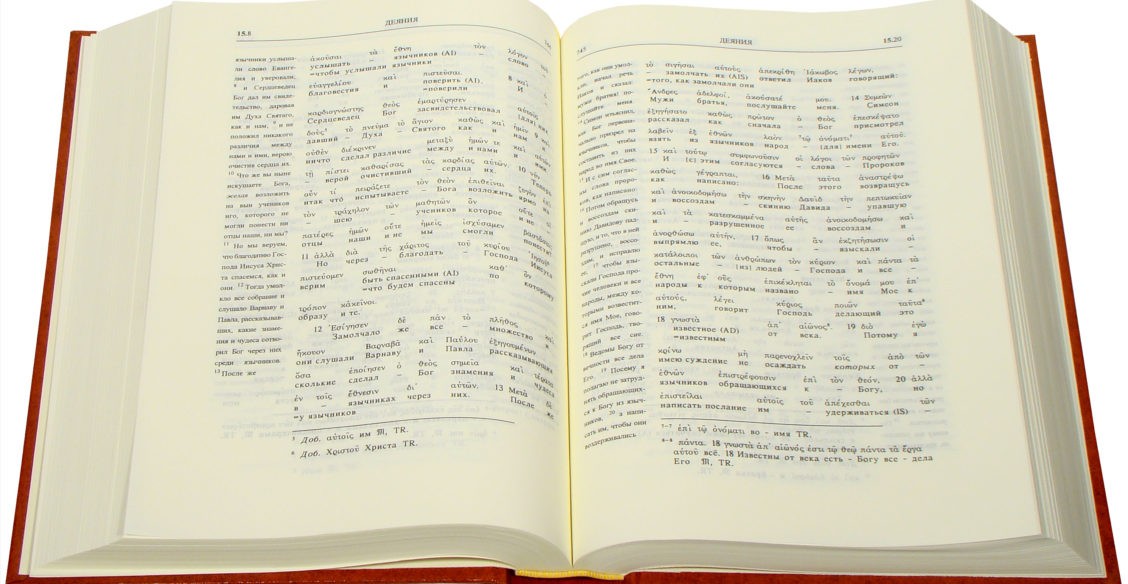 15.8 ДЕЯНИЯ
язычники услыша-
ли слово Еванге-
лия и уверовали;
8 и Сердцеведец
Бог дал им свиде-
тельство, даровав
им Духа Святаго,
как и нам; 9 и не
положил никакого
различия между
нами и ими, верою
очистив сердца их.
10 Что же вы ныне
искушаете Бога,
желая возложить
на выи учеников
иго, которого не
могли понести ни
отцы наши, ни мы?
11 Но мы веруем,
что благодатию Гос-
пода Иисуса Хрис-
та спасемся, как и
они. 12 Тогда умол-
кло все собрание и
слушало Варнаву и
Павла, рассказывав-
ших, какие знаме-
ния и чудеса сотво-
рил Бог через них
среди язычников.
13 После же
ἀκοῦσαι τὰ ἔθνη τὸν λόγον τοῦ
услышать – язычники (AI) – слово –
=чтобы услышали язычники
εὐαγγελίου καὶ πιστεῦσαι. 8 καὶ ὁ
благовестия и поверить (AI). И –
=поверили
καρδιογνώστης θεὸς ἐμαρτύρησεν αὐτοῖς
Сердцеведец Бог засвидетельствовал [для] них
δοὺς⁵ τὸ πνεῦμα τὸ ἅγιον καθὼς καὶ ἡμῖν 9 καὶ
давший – Духа – Святого как и нам и
οὐθὲν διέκρινεν μεταξὺ ἡμῶν τε καὶ αὐτῶν
ничто сделал различие между и нами и
τῇ πίστει καθαρίσας τὰς καρδίας αὐτῶν. 10 νῦν
– верой очистивший – сердца их. Теперь
οὖν τί πειράζετε τὸν θεὸν ἐπιθεῖναι ζυγὸν
итак что испытываете – Бога возложить ярмо
τὸν τράχηλον τῶν μαθητῶν ὃν οὔτε οἱ
– шею – учеников которое и не
πατέρες ἡμῶν οὔτε ἡμεῖς ἰσχύσαμεν βαστάσαι;
отцы наши и не мы смогли понести?
11 ἀλλὰ διὰ τῆς χάριτος τοῦ κυρίου Ἰησοῦ
Но через – благодать – Господа Иисуса
πιστεύομεν σωθῆναι καθ' ὃν
верим быть спасенными (AI) по которому
=что будем спасены
τρόπον κἀκεῖνοι.
образу и те.
12 Ἐσίγησεν δὲ πᾶν τὸ πλῆθος
Замолчало же все – множество
ἤκουον Βαρναβᾶ καὶ Παύλου ἐξηγουμένων
они слушали Варнаву и Павла рассказывающих
ὅσα ἐποίησεν ὁ θεὸς σημεῖα καὶ τέρατα
сколькие сделал – Бог знамения и чудеса
ἐν τοῖς ἔθνεσιν δι' αὐτῶν. 13 Μετὰ δὲ
в – язычниках через них. После же
=у язычников
5 Доб. αὐτοῖς им 𝔐, TR.
6 Доб. Χριστοῦ Христа TR.
745 ДЕЯНИЯ 15.20
того, как они умол-
кли, начал речь
Иаков и сказал:
мужи братия! по-
слушайте меня.
14 Симон изъяснил,
как Бог первона-
чально призрел на
язычников, чтобы
составить из них
народ во имя Свое.
15 И с сим соглас-
ны слова проро-
ков, как написано:
16 Потом обращусь
и воссоздам ски-
нию Давидову пад-
шую, и то, что в ней
разрушено, воссо-
здам, и исправлю
ее, 17 чтобы взы-
скали Господа про-
чие человеки и все
народы, между ко-
торыми возвестит-
ся имя Мое, гово-
рит Господь, тво-
рящий все сие.
18 Ведомы Богу от
вечности все дела
Его. 19 Посему я
полагаю не затруд-
нять обращающих-
ся к Богу из языч-
ников, 20 а напи-
сать им, чтобы они
воздерживались
τὸ σιγῆσαι αὐτοὺς ἀπεκρίθη Ἰάκωβος λέγων,
– замолчать их (AIS) ответил Иаков говорящий:
=того, как замолчали они
Ἄνδρες ἀδελφοί, ἀκούσατέ μου. 14 Συμεὼν
Мужи братья, послушайте меня. Симеон
ἐξηγήσατο καθὼς πρῶτον ὁ θεὸς ἐπεσκέψατο
рассказал как сначала – Бог присмотрел
λαβεῖν ἐξ ἐθνῶν λαὸν ⁷τῷ ὀνόματι⁷ αὐτοῦ.
взять из язычников народ – [для] имени Его.
15 καὶ τούτῳ συμφωνοῦσιν οἱ λόγοι τῶν προφητῶν
И [с] этим согласуются – слова – Пророков
καθὼς γέγραπται, 16 Μετὰ ταῦτα ἀναστρέψω
как написано: После этого возвращусь
καὶ ἀνοικοδομήσω τὴν σκηνὴν Δαυὶδ τὴν πεπτωκυῖαν
и воссоздам – скинию Давида – упавшую
καὶ τὰ κατεσκαμμένα αὐτῆς ἀνοικοδομήσω καὶ
и – разрушенное ее воссоздам и
ἀνορθώσω αὐτήν, 17 ὅπως ἂν ἐκζητήσωσιν οἱ
выпрямлю ее, чтобы – взыскали –
κατάλοιποι τῶν ἀνθρώπων τὸν κύριον καὶ πάντα τὰ
остальные – [из] людей – Господа и все –
ἔθνη ἐφ' οὓς ἐπικέκληται τὸ ὄνομά μου ἐπ'
народы к которым названо – имя Мое к
αὐτούς, λέγει κύριος ποιῶν ταῦτα⁸
ним, говорит Господь делающий это
18 γνωστὰ ἀπ' αἰῶνος⁸. 19 διὸ ἐγὼ
известное (AD) от века. Потому я
=известным
κρίνω μὴ παρενοχλεῖν τοῖς ἀπὸ τῶν
имею суждение не осаждать которых от –
ἐθνῶν ἐπιστρέφουσιν ἐπὶ τὸν θεόν, 20 ἀλλὰ
язычников обращающихся к – Богу, но
ἐπιστεῖλαι αὐτοῖς τοῦ ἀπέχεσθαι τῶν
написать послание им – удерживаться (IS) –
7–7 ἐπὶ τῷ ὀνόματι во - имя TR.
8–8 πάντα. 18 γνωστὰ ἀπ' αἰῶνός ἐστι τῷ θεῷ πάντα τὰ ἔργα
αὐτοῦ всё. 18 Известны от века есть - Богу все - дела
Его 𝔐, TR.